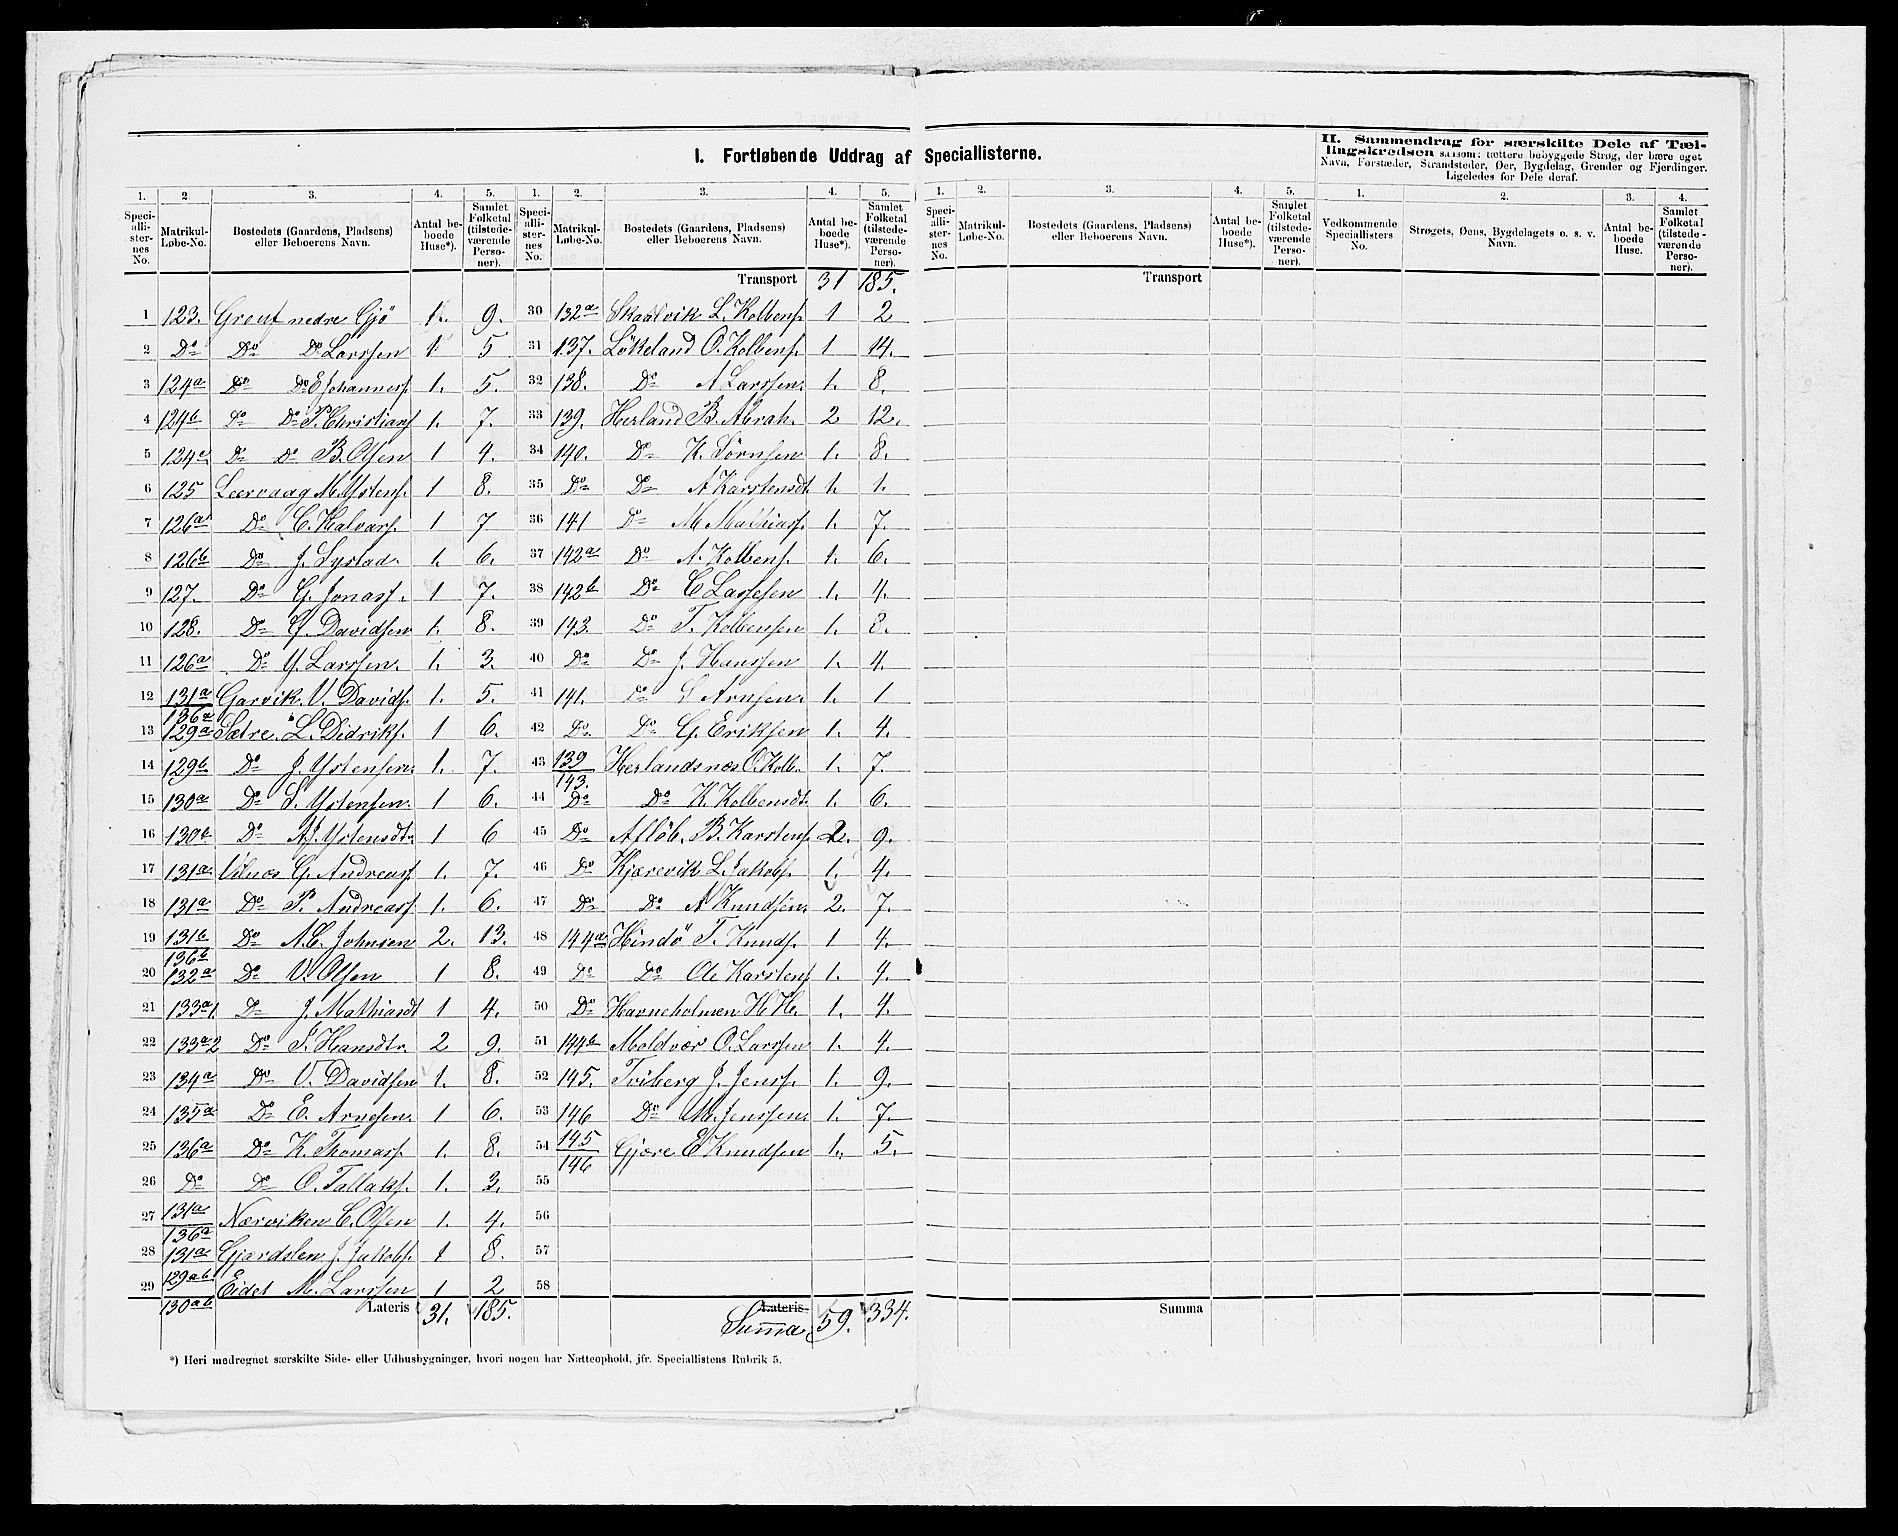 I. Fortløbende Uddrag af Speciallisterne.
II. Sammendrag for særskilte Dele af Tæl-
lingskredsen saasom: tættere bebyggede Strøg, der bære eget
Navn, Forstæder, Strandsteder, Øer, Bygdelag, Grender og Fjerdinger.
Ligeledes for Dele deraf.
1. 2 3. 4. 5. 1. 2. 3. 4. 5. 1. 2. 3. 4. 5. 1. 2. 3. 4.
Speci-alli-ster-nes No. Matrikul-Løbe-No. Bostedets (Gaardens, Pladsens) eller Beboerens Navn. Antal be-boede Huse*). Samlet Folketal (tilstede-værende Perso-ner).
Speci-alli-ster-nes No. Matrikul-Løbe-No. Bostedets (Gaardens, Pladsens) eller Beboerens Navn. Antal be-boede Huse*). Samlet Folketal (tilstede-værende Perso-ner).
Speci-alli-ster-nes No. Matrikul-Løbe-No. Bostedets (Gaardens, Pladsens) eller Beboerens Navn. Antal be-boede Huse*). Samlet Folketal (tilstede-værende Perso-ner).
Vedkommende Speciallisters No. Strøgets, Øens, Bygdelagets o. s. v. Navn. Antal be-boede Huse. Samlet Folketal (tilstede-værende Perso-ner).
1 123. nedre Gjö 1. 9.
2 Do Do Do Larssen 1 5
3 124a Do Do E Johannesf. 1. 5.
4 124b Do Do P. Christiansf 1. 7.
5 124c Do Do B. Olsen 1 4.
6 125 Leervaag M. Ystensf. 1 8.
7 126a Do C. Halvorsf. 1 7
8 126b Do J. Systad. 1. 6.
9 127. Do G. Jonasf. 1 7.
10 128. Do G. Davidsen 1. 8.
11 126a Do Y. Larssen. 1. 3.
12 131a/136a Garvik V. Davidsf. 1. 5.
13 129a Sætre. L. Didriksf. 1 6.
14 129b Do J. Ystensen. 1. 7.
15 130a Do S. Ystensen. 1 6.
16 130b Do Ystensdt. 1 6
17 131a Vilnes G. Andreasf 1. 7.
18 131a Do P. Andreasf 1. 6.
19 131b/136b Do A. C. Johnsen 2. 13.
20 132a Do V. Olsen 1 8.
21 133a1. Do J. Mathiasdt 1 4.
22 133a2 Do Hansdtr. 2 9.
23 134a Do V. Davidsen 1. 8.
24 135a Do E. Arnesen. 1 6.
25 136a Do K. Thomasf. 1. 8.
26 Do Do O. Tallaksf. 1. 3.
27 131a/136a Nærviken C. Olsen 1. 4.
28 131a Gjærdslen J. Jakobsf. 1 8.
29 129ab/130ab Eidet M. Larssen 1 2
Lateris 31. 185.
Transport 31 185.
30 132a Skaalvik L. Kolbensf. 1 2
31 137. Lökeland O. Kolbensf. 1 14.
32 138. Do A Larssen. 1. 8.
33 139. Herland B. Abrah. 2 12.
34 140. Do K. Sörnsen 1. 8.
35 Do Do A Karstensdt. 1. 1.
36 141 Do M Mathiasf. 1. 7.
37 142a Do A. Kolbensf. 1. 6.
38 142b Do C Lassesen 1. 4.
39 143. Do T. Kolbensen 1. 8.
40 Do Do J. Hanssen 1. 4.
41 141. Do Arnsen. 1. 1
42 Do Do G. Eriksen 1. 4.
43 139/143. Herlandsnæs O. Kolb. 1. 7.
44 Do Do K. Kolbensdt. 1. 6.
45 Do Aflöb. B. Karstensf. 2. 9.
46 Do Kjærevik L. Jakobsf. 1. 4.
47 Do Do A Knudsen. 2. 7.
48 144a Hindö T. Knudsf. 1 4.
49 Do Do Ole Karstensf 1. 4.
50 Do Havneholmen H. He. 1. 4.
51 144b Moldvær O. Larssen 1. 4.
52 145. Tviberg J. Jensf. 1. 9.
53 146 Do M. Jenssen. 1. 7.
54 145/146 Gjøre E Knudsen 1. 5.
55
56
57
58
Lateris
Summa 59. 334.
Transport
Summa
*) Heri medregnet særskilte Side- eller Udhusbygninger, hvori nogen har Natteophold, jfr. Speciallistens Rubrik 5.